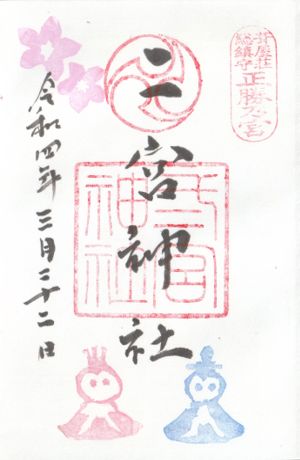 芦屋荘
総鎮守
正一勝乃宮
二宮神社
二宮
神社
令和四年三月二十二日